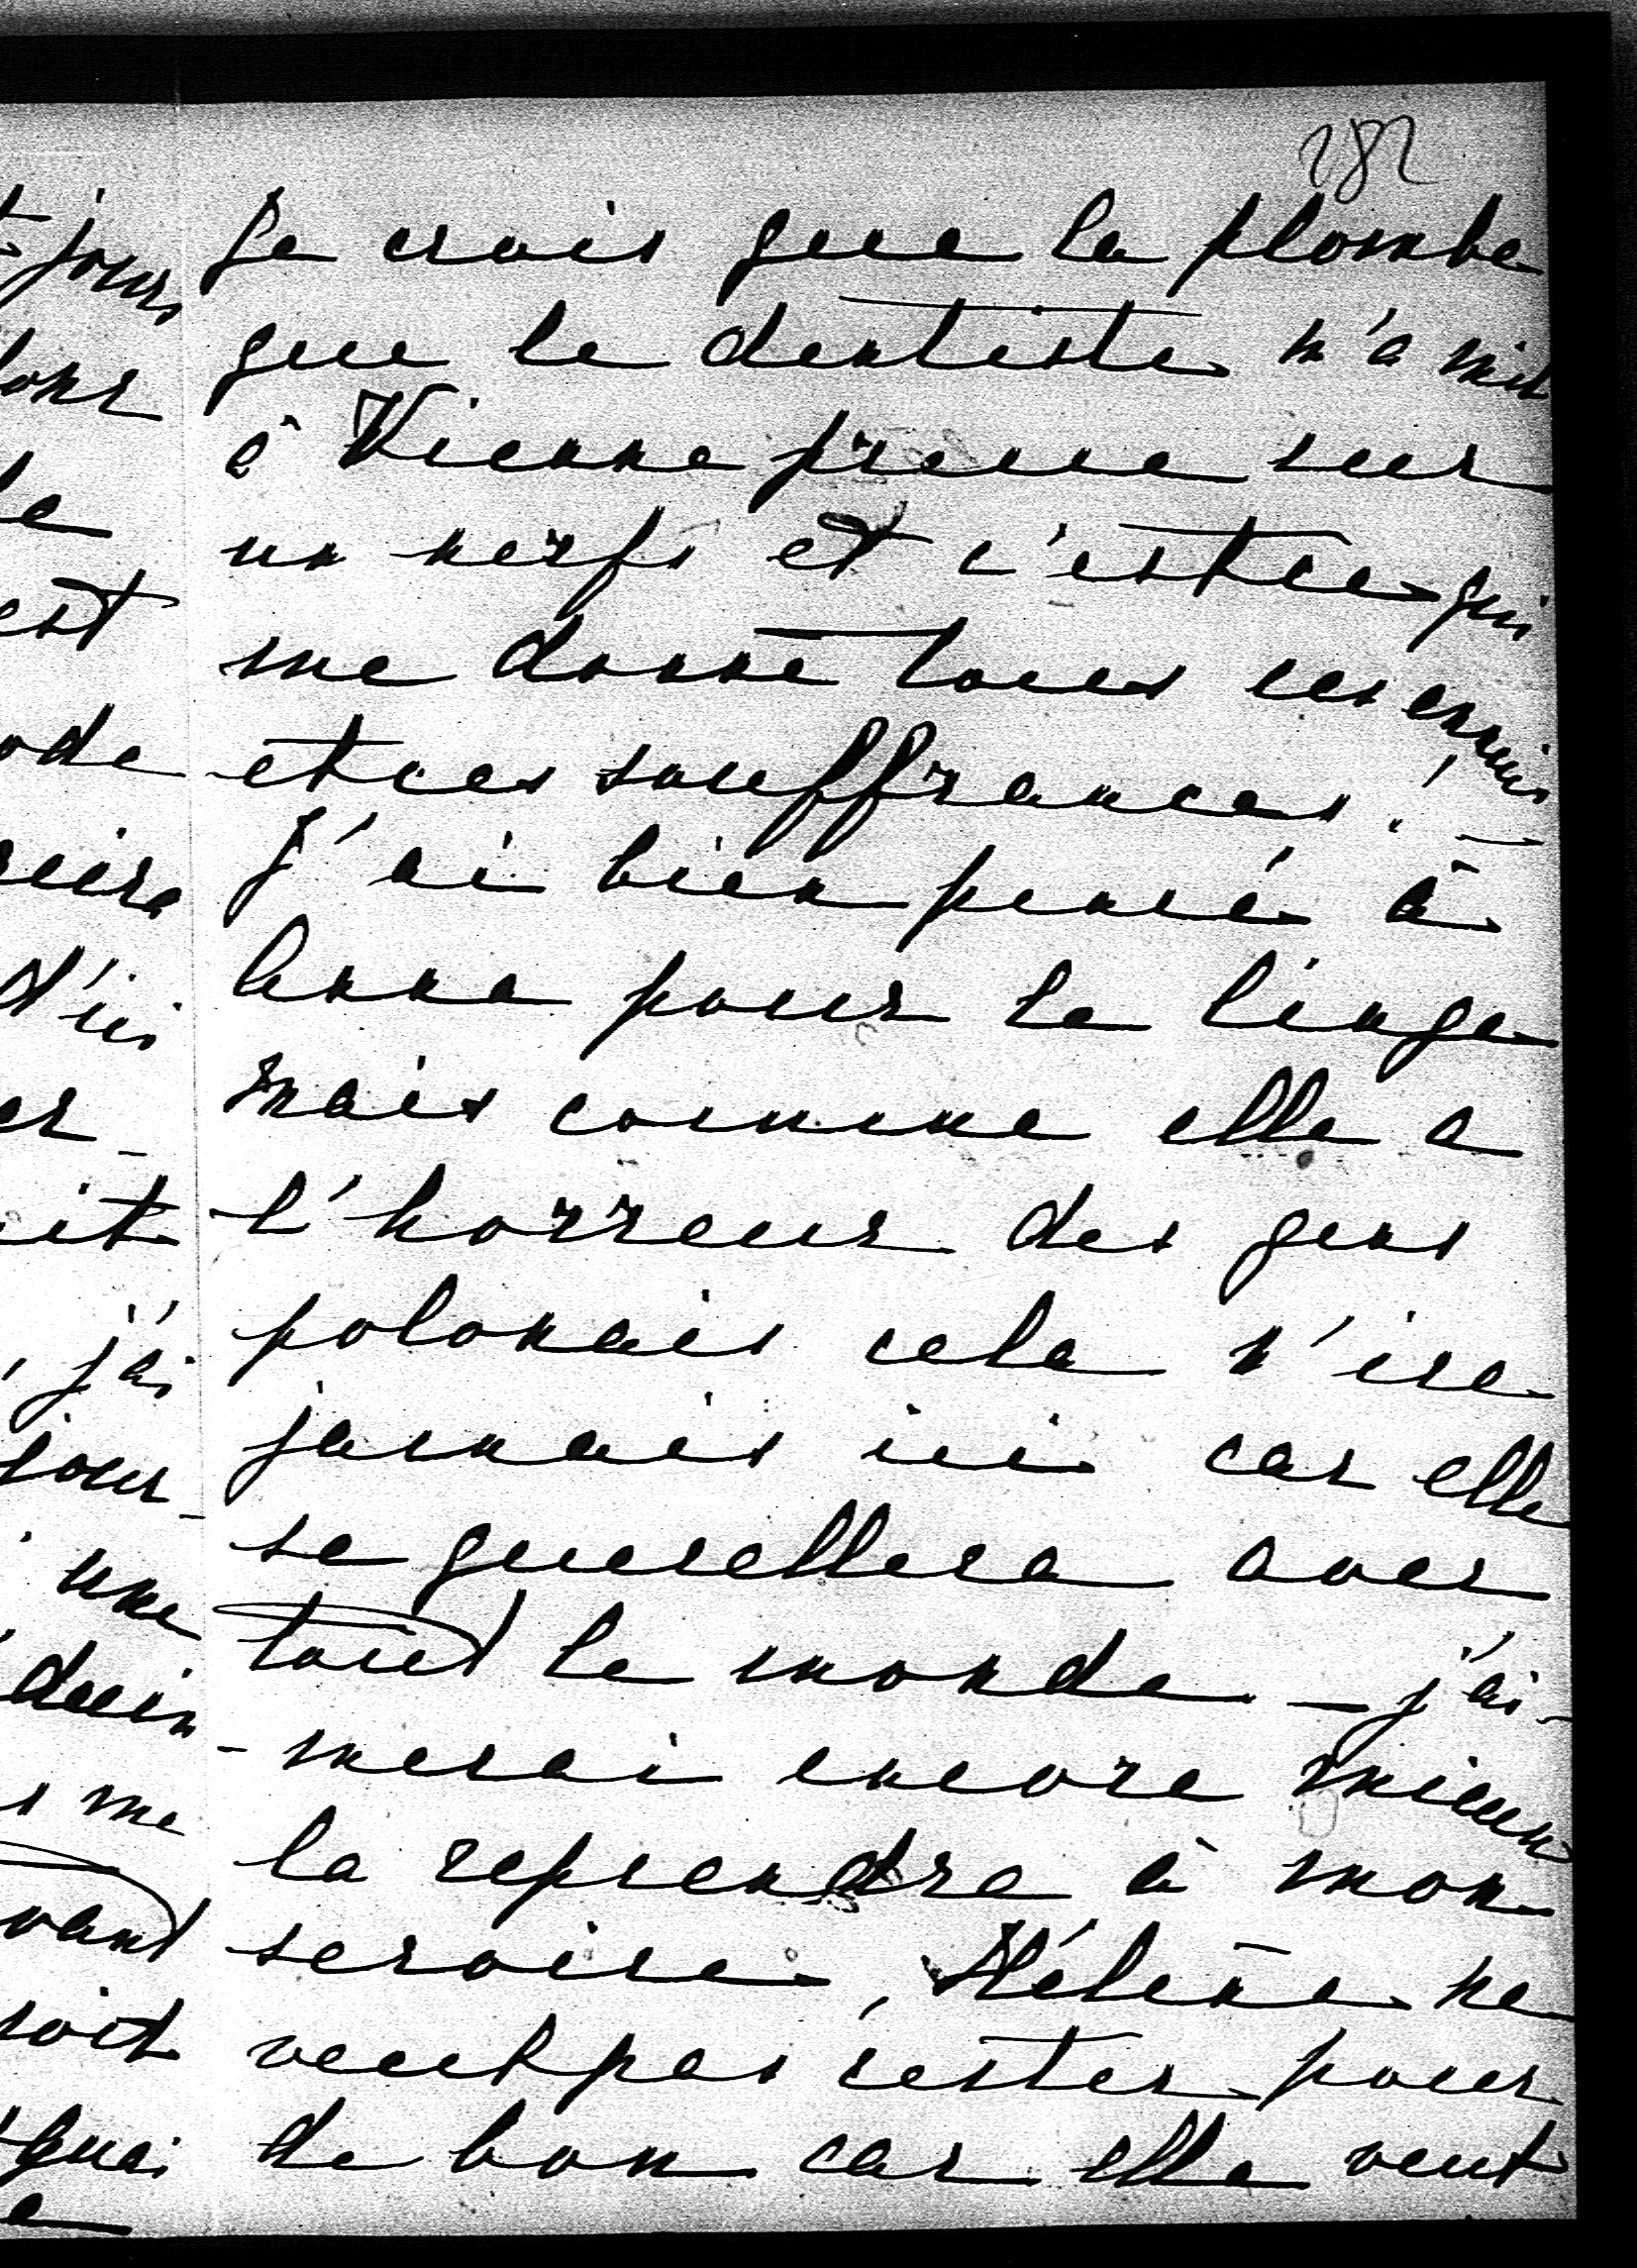 282
Je crois que la plombe
que le dentiste m'a mis
à Vienne presse sur
un nerfs et c'est ce qui
me donne tous ces ennuis
et ces souffrances! —
J'ai bien pensé à
Anna pour le linge
mais comme elle a
l'horreur des gens
polonais cela n'ira
jamais ici car elle
se querellera avec
tout le monde — j'ai-
-merai encore mieux
la reprendre à mon
service, Hélène ne
veut pas rester pour
de bon car elle veut
t jours
est
d'ici
er-
it
, j'ai
jour-
une
s me
vant
soit